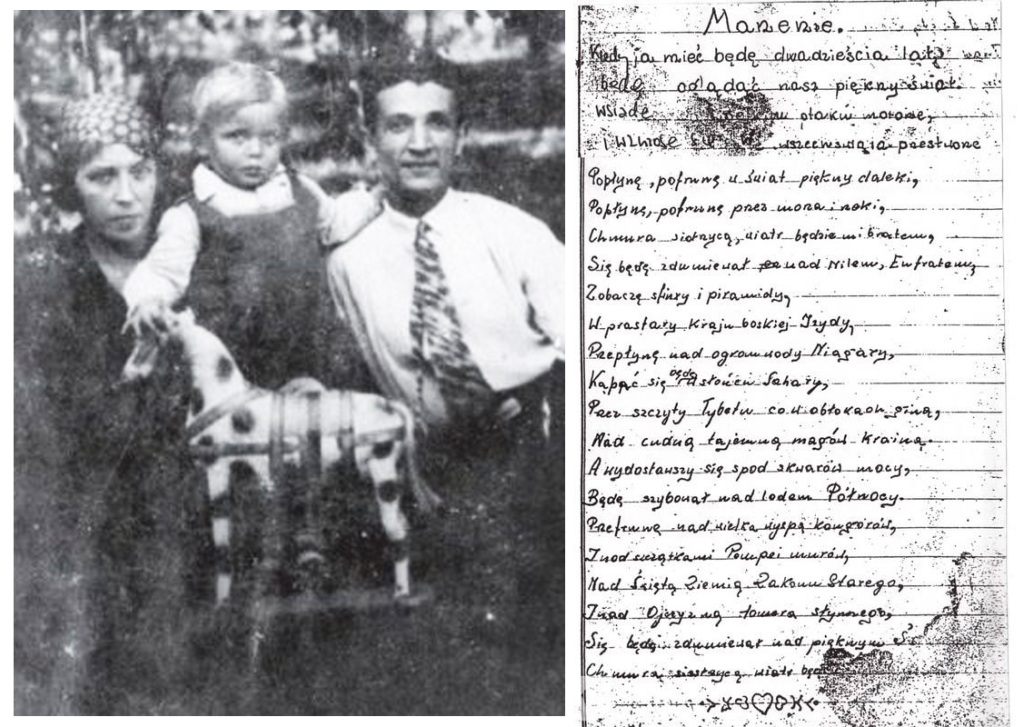 Marzenie.
Kiedy ja mieć będę dwadzieścia lat,
będę oglądać nasz piękny świat.
Wsiądę ptaku motorze,
i Wzniosę się we wszechświata przestworze
Popłynę, pofrunę w świat piękny daleki,
Popłynę, pofrunę przez morza i rzeki,
Chmura siostrzycą, wiatr będzie mi bratem,
Się będę zdumiewał nad Nilem, Eufratem,
Zobaczę sfinxy i piramidy,
W prastary kraju boskiej Izydy,
Przepłynę nad ogrom wody Niagary,
Kąpać się będę w słońcu Sahary,
Przez szczyty Tybetu co w obłokach giną,
Nad cudną tajemną magów krainą.
A wydostawszy się spod skwarów mocy,
Będę szybował nad lodem Północy.
Przefrunę nad wielką wyspą kangurów,
I nad szczątkami Pompei murów,
Nad Świętą Ziemią Zakonu Starego,
I nad Ojczyzną Homera słynnego,
Się będę zdumiewał nad pięknym Ś
Chmura siostrzycą wiatr będ